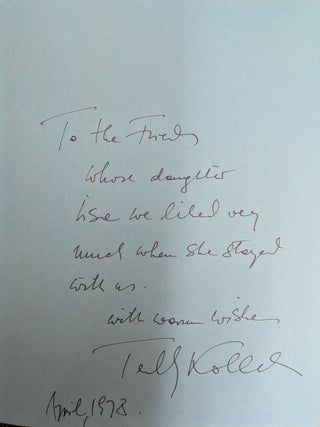 To the Friends
whose daughter
we liked very
much when she stayed
with us.
with warm wishes
Teddy Kollek
April, 1978.